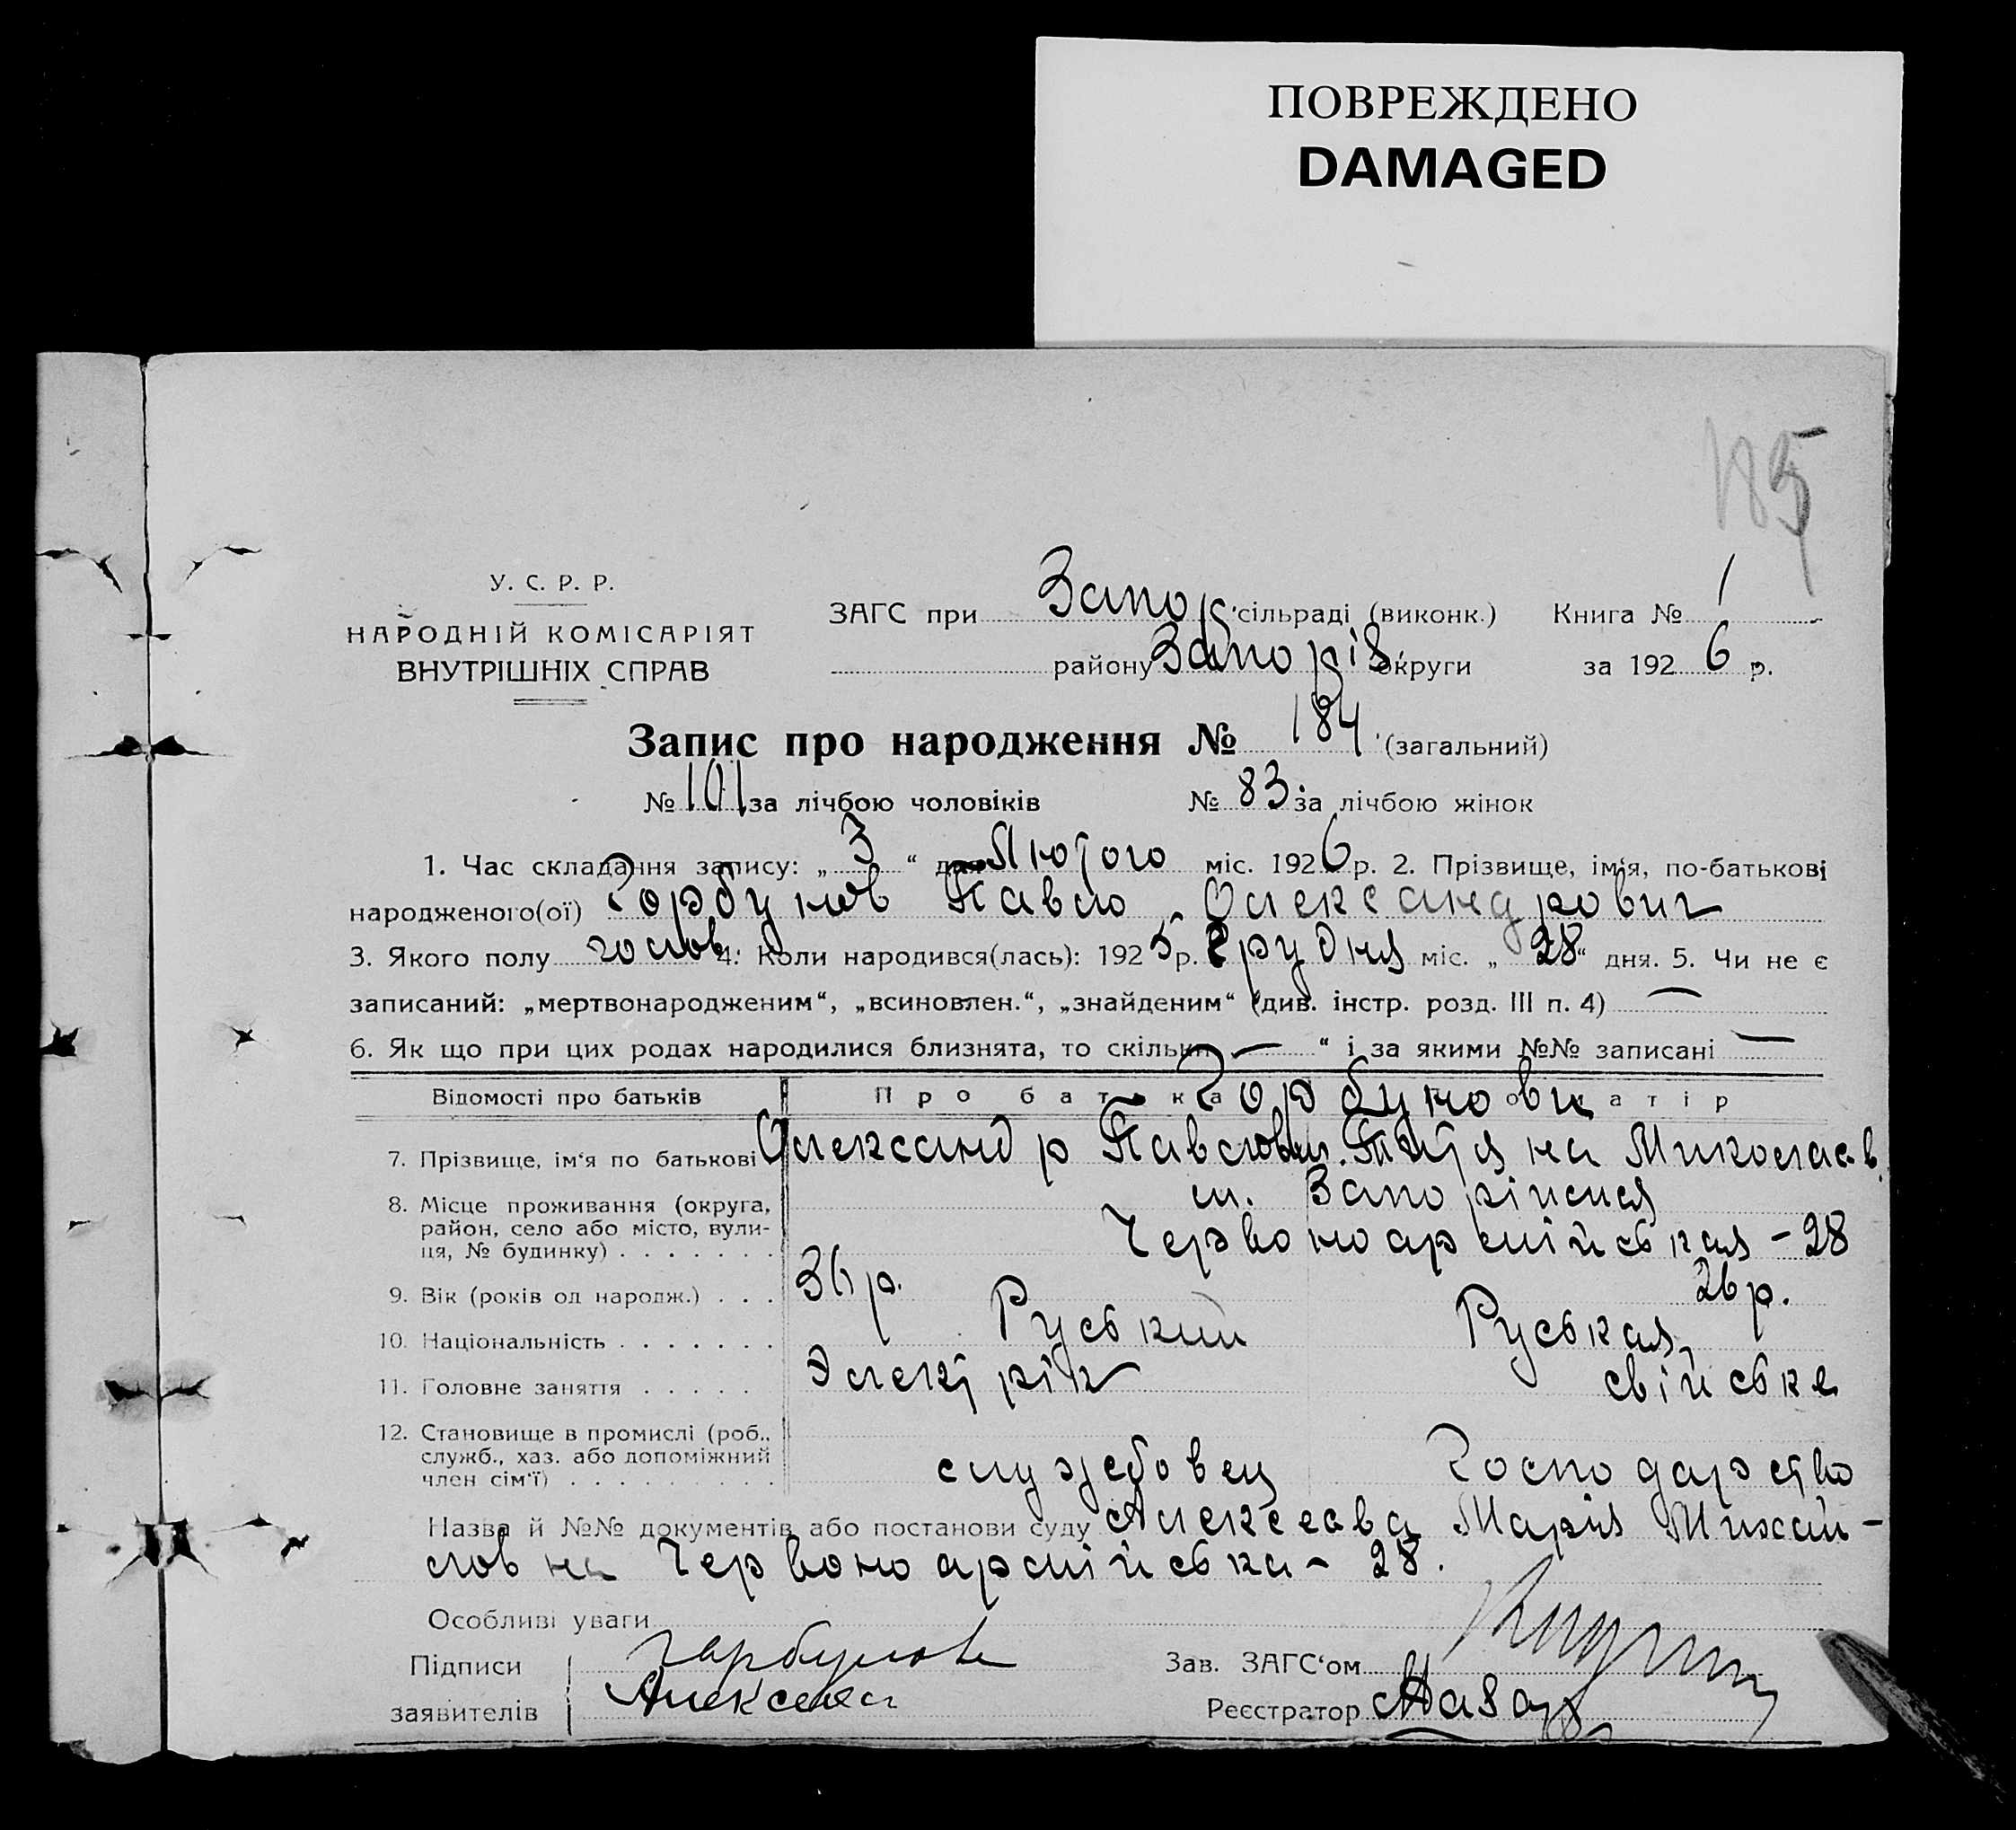 ПОВРЕЖДЕНО
DAMAGED
185
У. С. Р. Р.
НАРОДНІЙ КОМІСАРІЯТ
ВНУТРІШНІХ СПРАВ
ЗАГС при Запор. сільраді (виконк.) Книга № 1
району Запоріз. округи за 1926 р.
Запис про народження № 184 (загальний)
№ 101 за лічбою чоловіків № 83 за лічбою жінок
1. Час складання запису: „3“ дня Лютого міс. 1926 р. 2. Прізвище, ім‘я, по-батькові
народженого(ої) Горбунов Павло Олександрович
3. Якого полу чолов. 4. Коли народився(лась): 1925 р. Грудня міс. „28“ дня. 5. Чи не є
записаний: „мертвонародженим“, „всиновлен.“, „знайденим“ (див. інстр. розд. III п. 4) —
6. Як що при цих родах народилися близнята, то скільки — “ і за якими №№ записані —
Відомості про батьків Про батька Про матір
Горбунови
7. Прізвище, ім‘я по батькові Олександр Павлович. Тетяна Миколаєв.
8. Місце проживання (округа, м. Запоріжжя
район, село або місто, вули-
ця, № будинку) . . . . . . . Червоноармійская - 28
9. Вік (років од народж.) . . . 36 р. 26 р.
10. Національність . . . . . . . Руський Руськая
11. Головне заняття . . . . . Электрік свійське
12. Становище в промислі (роб.,
служб., хаз. або допоміжний службовец Господарство
член сім‘ї) . . . . . . . . . .
Назва й №№ документів або постанови суду Алексеева Марія Михай-
ловна Червоноармійська - 28.
Особливі уваги
Підписи Горбунов Зав. ЗАГС‘ом
заявителів Алексеева Реєстратор